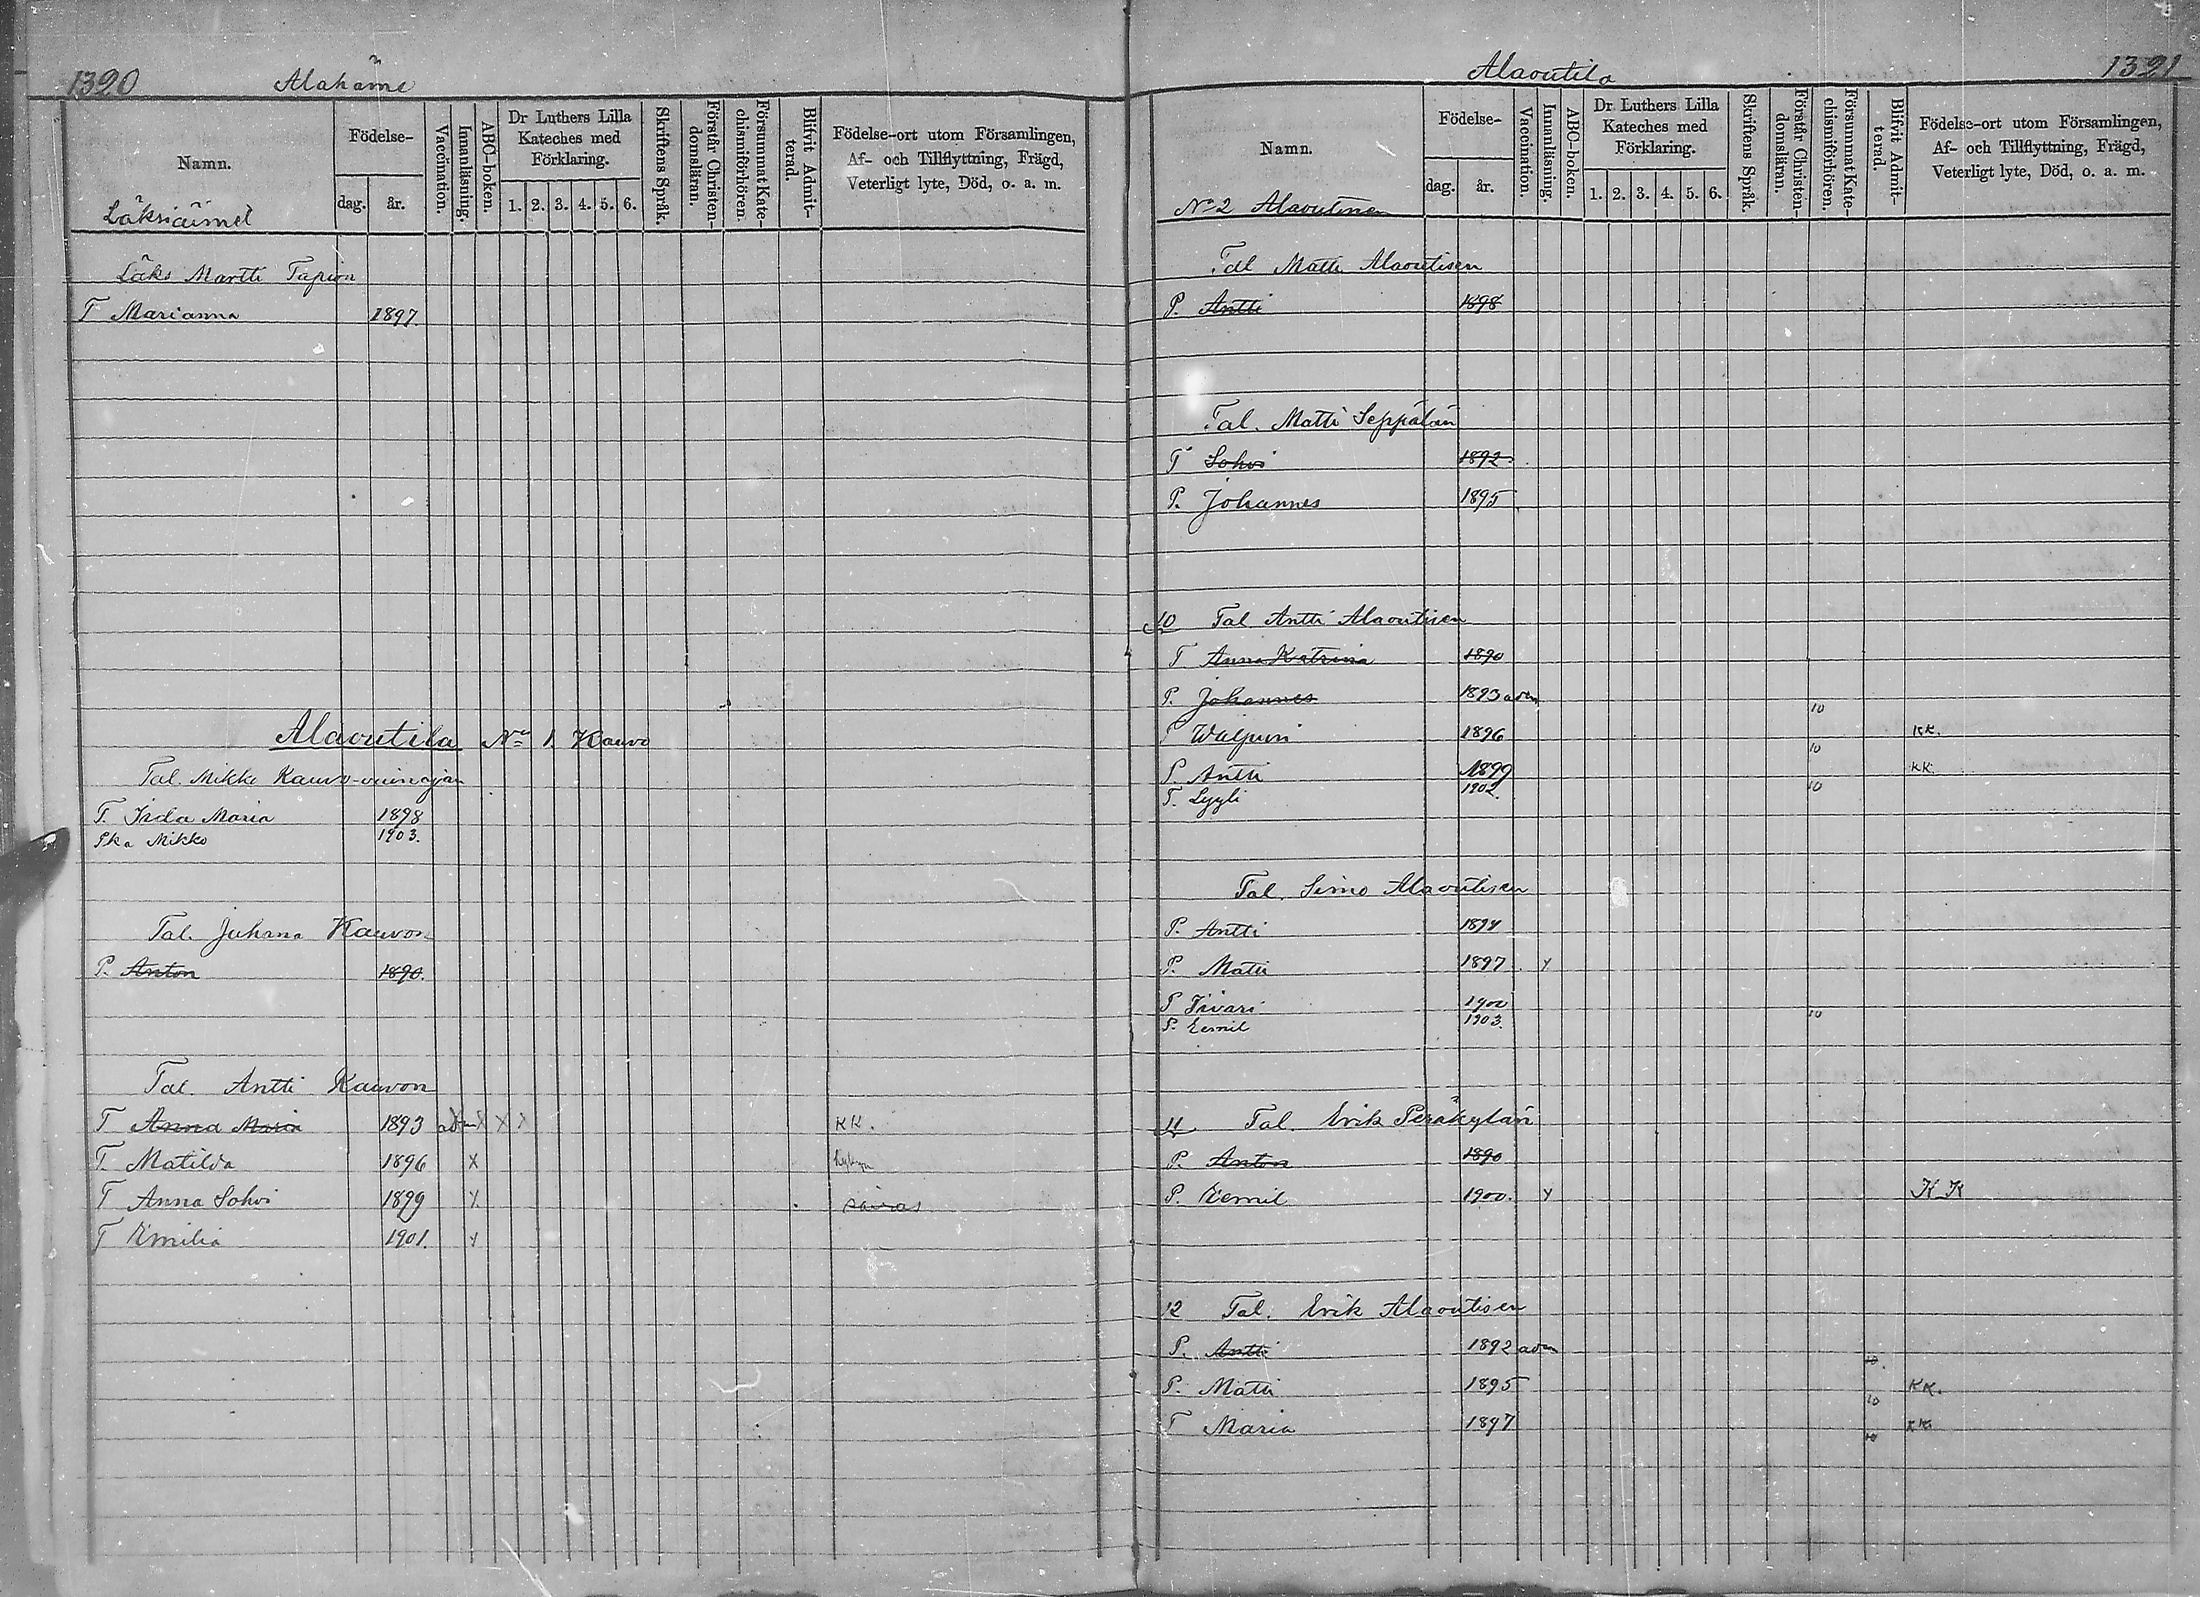 1320 Alahäme
Namn. Födelse- dag. år. Vaccination. Innanläsning. ABC-boken. Dr Luthers Lilla Kateches med Förklaring. 1. 2. 3. 4. 5. 6. Skriftens Språk. Förstår Christendomsläran. Försummat Katechismiförhören. Blifvit Admitterad. Födelse-ort utom Församlingen, Af- och Tillflyttning, Frägd, Veterligt lyte, Död, o. a. m.
Läksiäimet
Läks Martti Tapion
T Marianna 1897.
Alaoutila No 1 Kauvo
Tal. Mikke Kauvo-ouinajan
T. Iida Maria 1898
Pka Mikko 1903.
Tal. Juhana Kauvon
P. Anton 1890.
Tal. Antti Kauvon
T Anna Maria 1893 adm X X X KK.
T. Matilda 1896 X
T Anna Sohvi 1899 X sairas
T Emilia 1901. X
Alaoutila 1321
Namn. Födelse- dag. år. Vaccination. Innanläsning. ABC-boken. Dr Luthers Lilla Kateches med Förklaring. 1. 2. 3. 4. 5. 6. Skriftens Språk. Förstår Christendomsläran. Försummat Katechismiförhören. Blifvit Admitterad. Födelse-ort utom Församlingen, Af- och Tillflyttning, Frägd, Veterligt lyte, Död, o. a. m.
No 2 Alaoutinen
Tal Matti Alaoutisen
P. Antti 1898
Tal. Matti Seppälän
T Sohvi 1892.
P. Johannes 1895
10 Tal Antti Alaoutisen
T Anna Katriina 1890
P. Johannes 1893 adm 10
T Walpuri 1896 10 KK.
P. Antti 1899 10 KK.
T. Lyyli 1902.
Tal. Simo Alaoutisen
P. Antti 1894
P. Matti 1897 X
P Iivari 1900 10
P. Eemil 1903.
11 Tal. Erik Peräkylän
P. Anton 1890
P. Eemil 1900. X KK
12 Tal. Erik Alaoutisen
P. Antti 1892 adm 10.
P. Matti 1895 10 KK.
T Maria 1897 10 KK